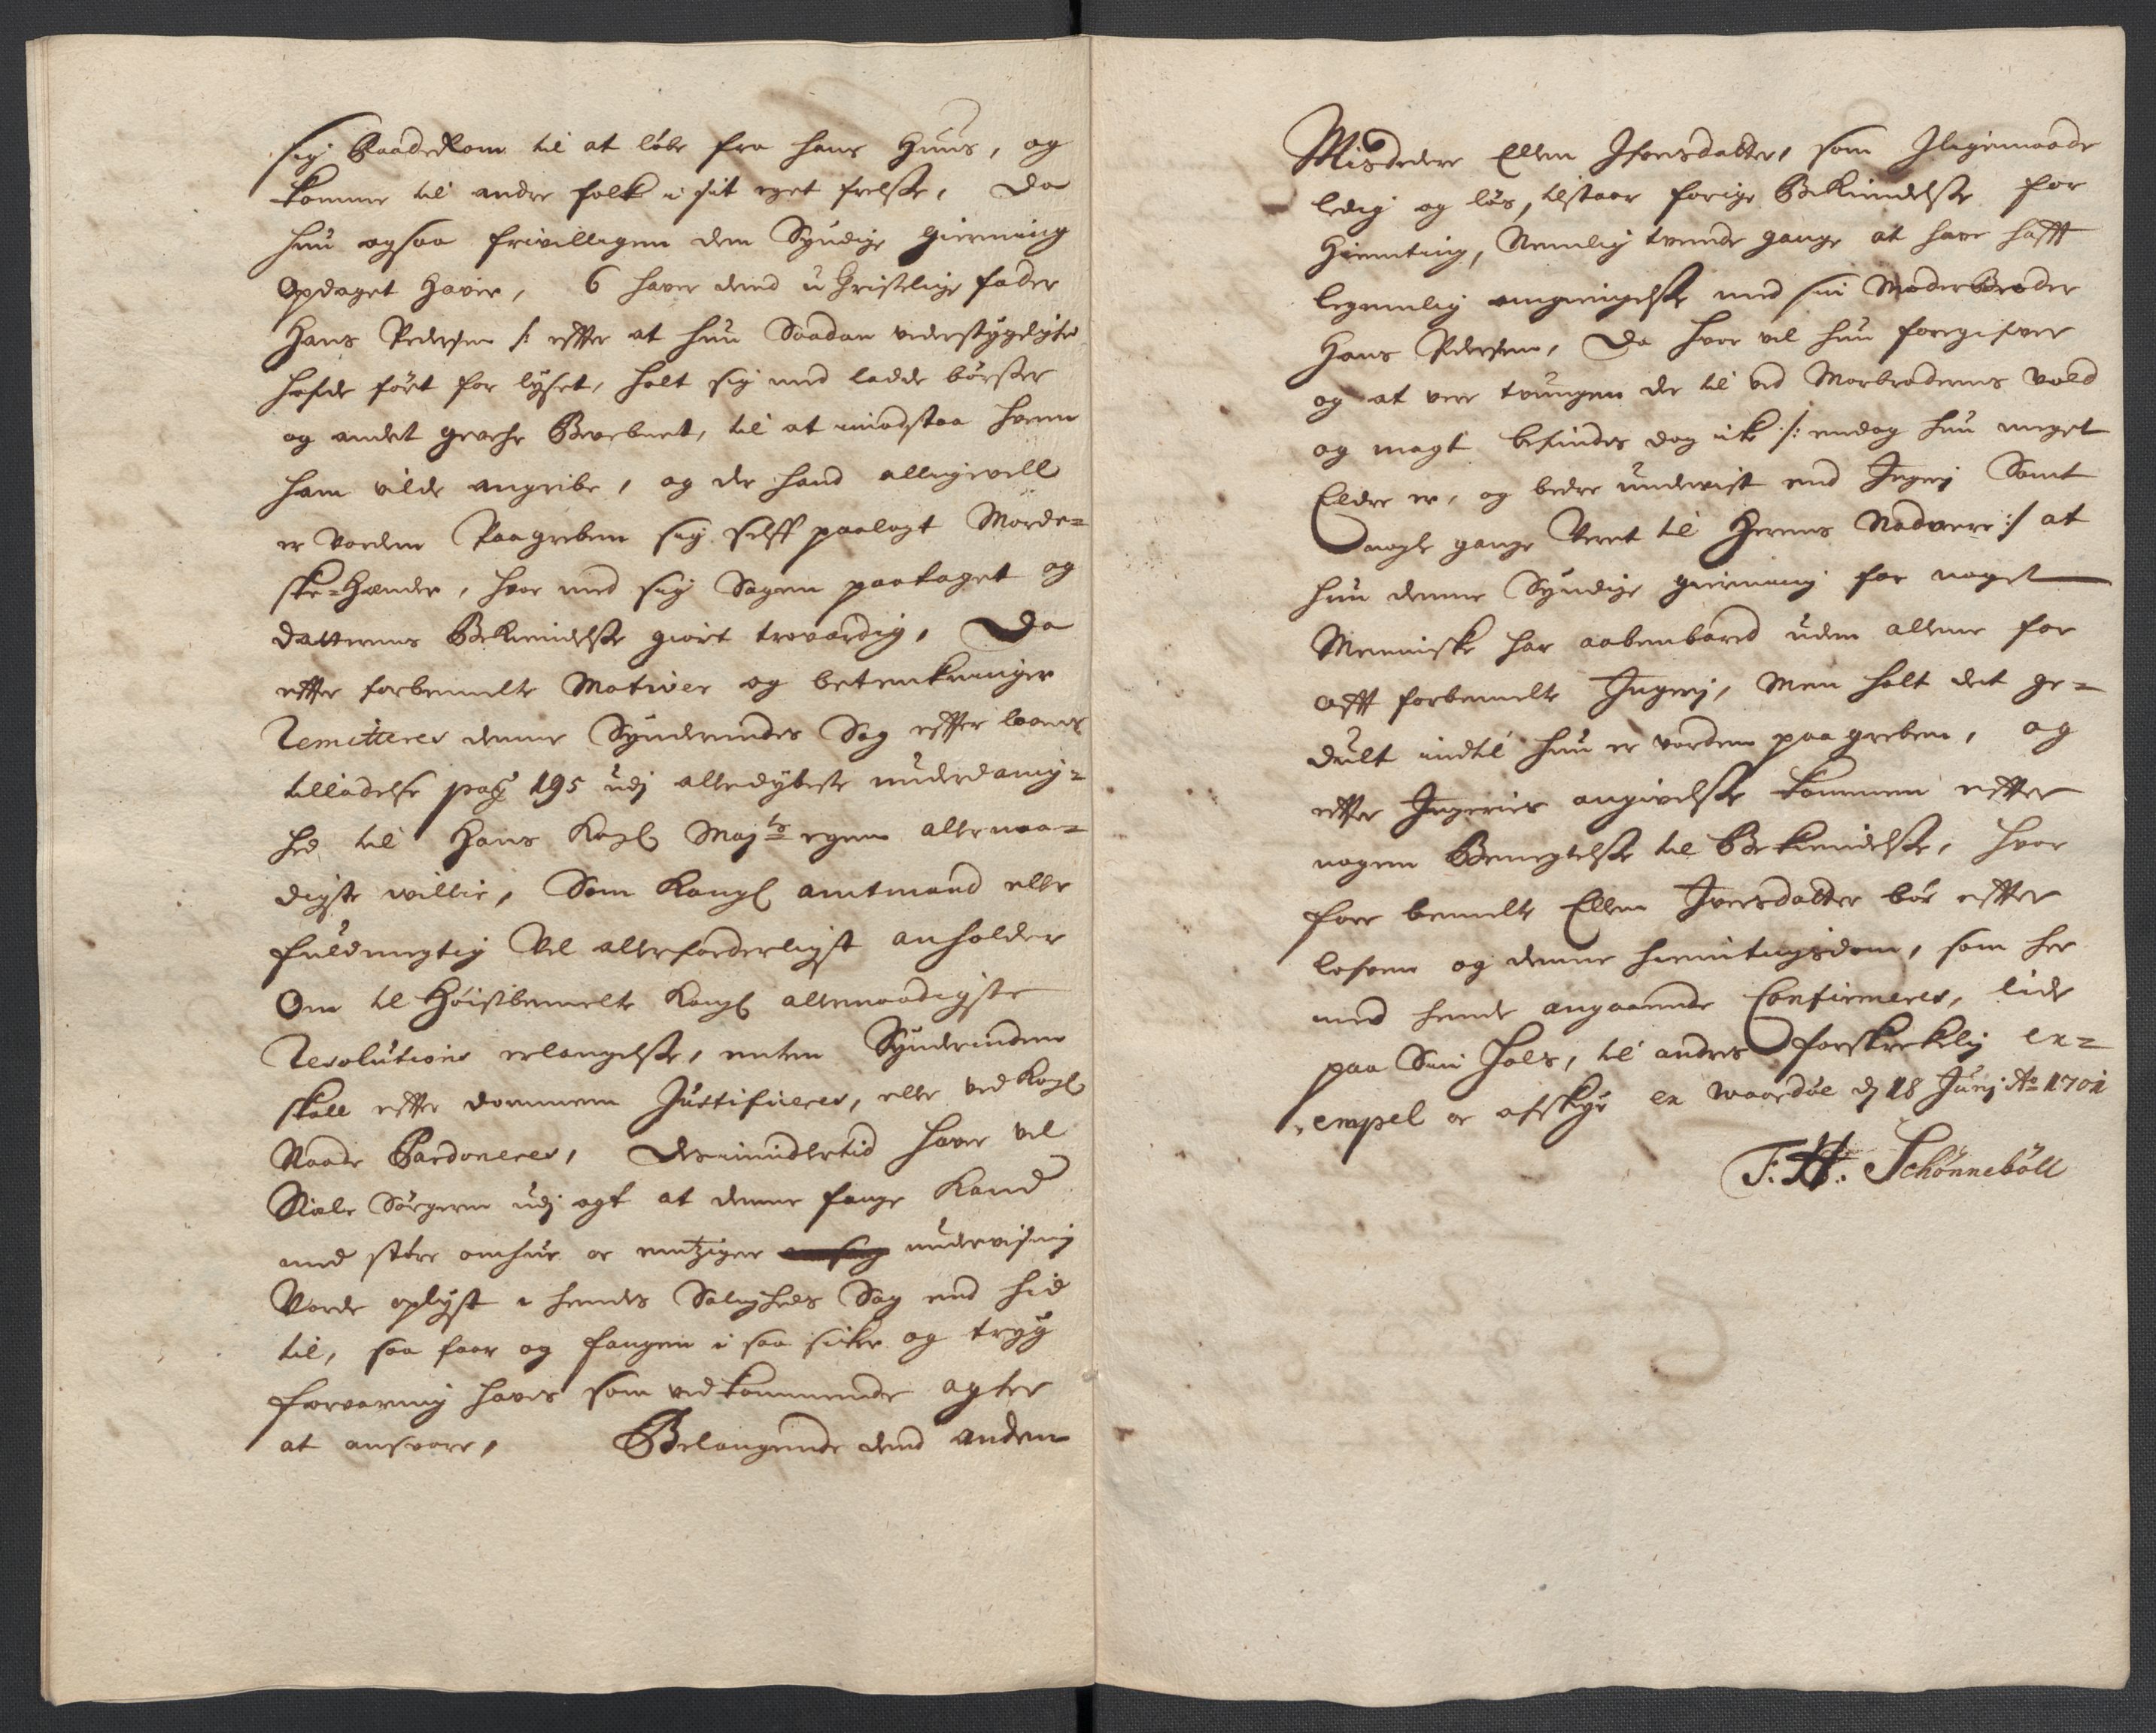 sig Raaderom til at løbe fra hans Huus, og
komme til andre folk i sit eget frelse, Da
hun ogsaa frivilligen den Syndige gierning
Opdaget Haver, 6 haver dend u Christelige fader
Hans Pedersen /: efter at hun Saadan vederstygelighed
hafde ført for lyset, holt sig med ladde børser
og andet gevehr Bevebnet, til at imodstaa hvem
ham vilde angribe, og der hand alligevell
er vorden Paagreben sig selff paalagt Morde-
ske-Hænder, hvor med sig Sagen paataget og
Datterens Bekiendelse giort troværdig, Da
efter forbemelte Motiver og betenkninger
Remitteres denne Synderindes Sag efter lovens
tilladelse pag 195 udj allerdybeste underdanig-
hed til Hans Kogl Majts egen allernaa-
digste willie, Som Kongl amtmand eller
fuldmegtig Vel allerforderligst anholder
Om til Høistbemelte Kongl allernaadigste
Resolutions erlangelse, enten Synderinden
skall efter dommen Justificeres, eller ved Kogl
Naade Pardoneres, Des imidlertid haver vel
Siæle Sørgeren udj agt at denne fange Kand
med større omhue oc undervisning
Vorde oplyst i hendes Saligheds Sag end hid
til, saa faar og fangen i saa sicker og tryg
forvaring haves som vedkommende agter
at ansvare, Belangende dend anden
Misdedere Ellen Ifversdatter, som Iligemaade
ledig og løs, tilstaar forige Bekiendelse for
Hiemting, Nemlig tvende gange at have hafft
legemlig omgiengelse med sin Moderbroder
Hans Pedersen, Da hvor vel hun foregifver
og at vere tvungen der til ved Morbroderens vold
og magt befindes dog ick /: endog hun meget
Eldre er, og bedre underwist end Ingerj Samt
nogle gange Veret til Herrens Nadvere :/ at
hun denne Syndige gierning for noget
Menniske har aabenbared uden allene for
offt forbemelte Ingerj, Men holt det ge-
dult indtil hun er vorden paagreben, og
efter Ingeries angivelse kommen efter
nogen Benegtelse til Bekiendelse, hvor
fore bemelte Ellen Iversdatter bør efter
lofven og denne hiemtingsdom, som her
med hende angaaende Confirmeres, lide
paa Sin Hals, til andres forskrekelig ex-
empel oc afskye ex Waardøe d 18 Junj Ao 1701
T: H: Schönnebøll